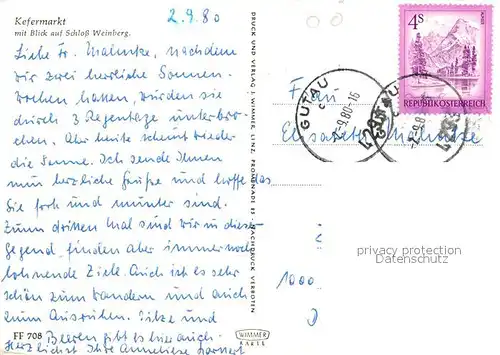 2.9.80
Kefermarkt
mit Blick auf Schloß Weinberg.
Liebe Fr. Malinke, nachdem
wir zwei herrliche Sonnen-
wochen hatten, wurden sie
durch 3 Regentage unterbro-
chen. Aber heute scheint wieder
die Sonne. Ich sende Ihnen
nun herzliche Grüße und hoffe das
Sie froh und munter sind.
Zum dritten Mal sind wir in dieser
Gegend, finden aber immer noch
lohnende Ziele. Auch ist es sehr
schön zum wandern und auch
zum Ausruhen. Pilze und
Beeren gibt es hier auch.
Herzlichst Ihre Anneliese
FF 708
DRUCK UND VERLAG J. WIMMER, LINZ, PROMENADE 23. NACHDRUCK VERBOTEN
WIMMER
KARTE
4S
ALMSEE
REPUBLIK ÖSTERREICH
GUTAU
-2.9.80-16
4293
Frau
Elisabeth
privacy protection
Datenschutz
1000
D